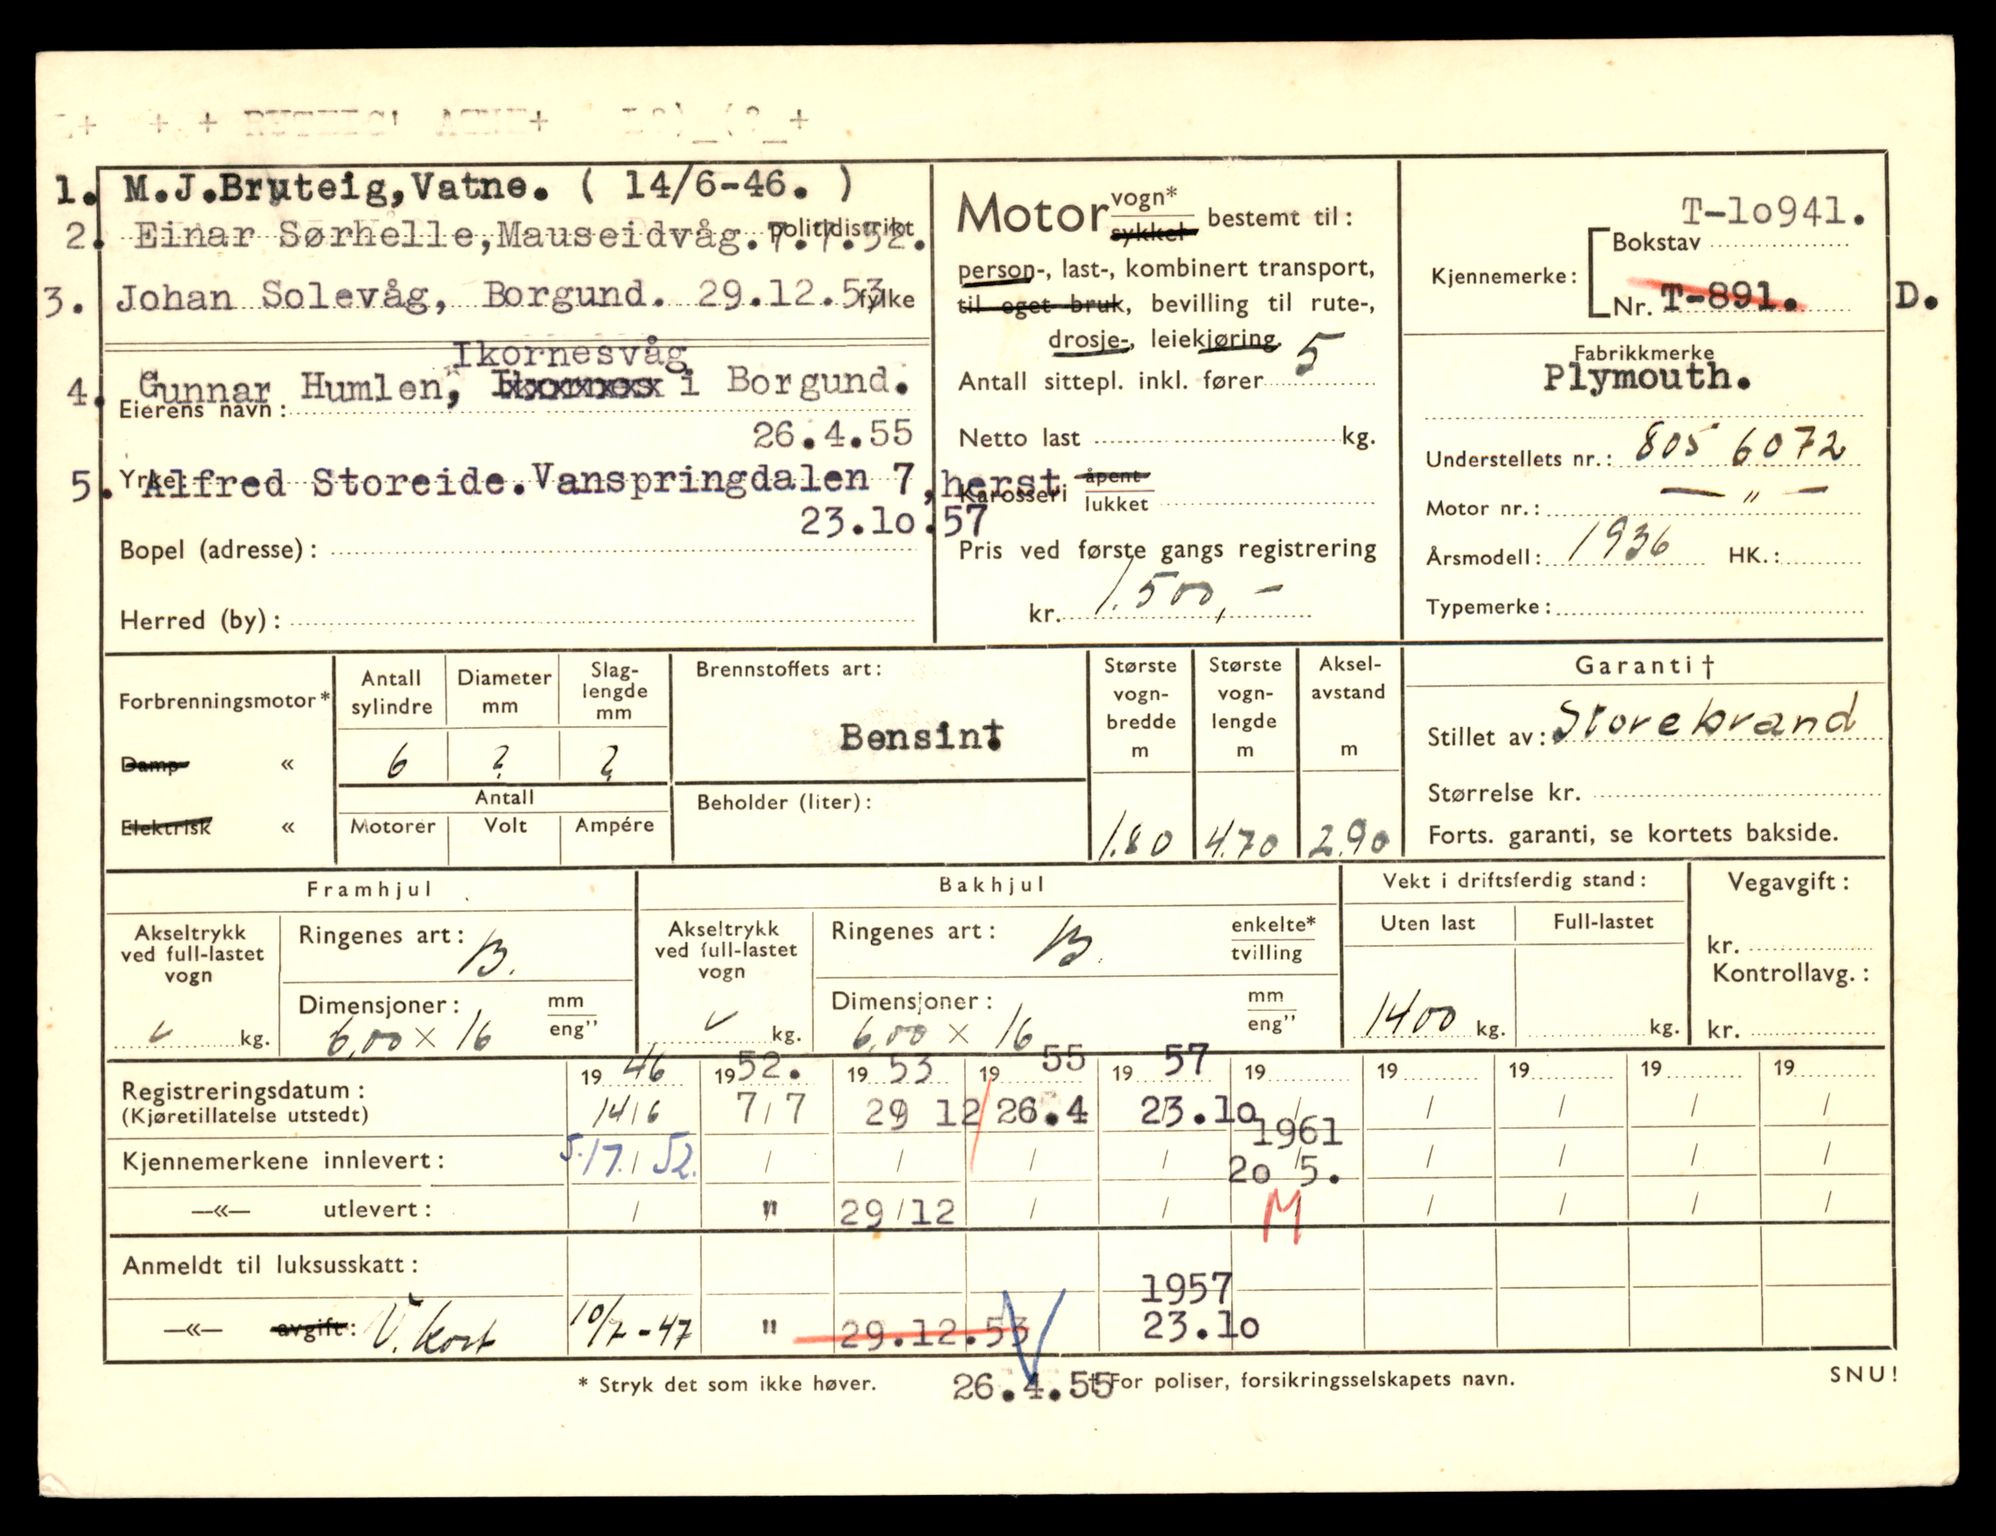 1. M.J.Bruteig,Vatne. ( 14/6-46. )
2. Einar Sørhelle,Mauseidvåg. 7.7.52. politidistrikt
3. Johan Solevåg, Borgund. 29.12.53 fylke
Ikornesvåg
4. Gunnar Humlen, Ikornes i Borgund.
Eierens navn:
26.4.55
5. Yrke: Alfred Storeide.Vanspringdalen 7,herst
23.1o.57
Bopel (adresse):
Herred (by):
Motor vogn*
sykkel bestemt til:
person-, last-, kombinert transport,
til eget bruk, bevilling til rute-,
drosje-, leiekjøring.
Antall sittepl. inkl. fører 5
Netto last kg.
Karosseri åpent
lukket
Pris ved første gangs registrering
kr. 1.500,-
T-1o941.
Bokstav
Kjennemerke:
Nr. T-891. D.
Fabrikkmerke
Plymouth.
Understellets nr.: 805 6072
Motor nr.: — " —
Årsmodell: 1936 HK.:
Typemerke:
Forbrenningsmotor*
Damp «
Elektrisk «
Antall sylindre
6
Diameter mm
?
Slag-lengde mm
?
Antall
Motorer Volt Ampére
Brennstoffets art:
Bensin.
Beholder (liter):
Største vogn-bredde m
1.80
Største vogn-lengde m
4.70
Aksel-avstand m
2.90
Garanti †
Stillet av: Storebrand
Størrelse kr.
Forts. garanti, se kortets bakside.
Framhjul
Akseltrykk ved full-lastet vogn
kg.
Ringenes art: B.
Dimensjoner: mm
6,00 × 16 eng”
Bakhjul
Akseltrykk ved full-lastet vogn
kg.
Ringenes art: B. enkelte*
tvilling
Dimensjoner: mm
6,00 × 16 eng”
Vekt i driftsferdig stand:
Uten last Full-lastet
1400 kg. kg.
Vegavgift:
kr.
Kontrollavg.:
kr.
Registreringsdatum: 19 46 19 52. 19 53 19 55 19 57 19 19 19 19 19
(Kjøretillatelse utstedt) 14/6 7/7 29 12 26.4 23.1o / / / / /
1961
Kjennemerkene innlevert: 5./7. 52. / / / / 2o/5. / / / /
—«— utlevert: / " 29/12 / / M / / / /
Anmeldt til luksusskatt:
1957
—«— avgift: V. kort 10/7-47 " 29.12.53 23.1o
* Stryk det som ikke høver. 26.4.55 † For poliser, forsikringsselskapets navn. SNU!